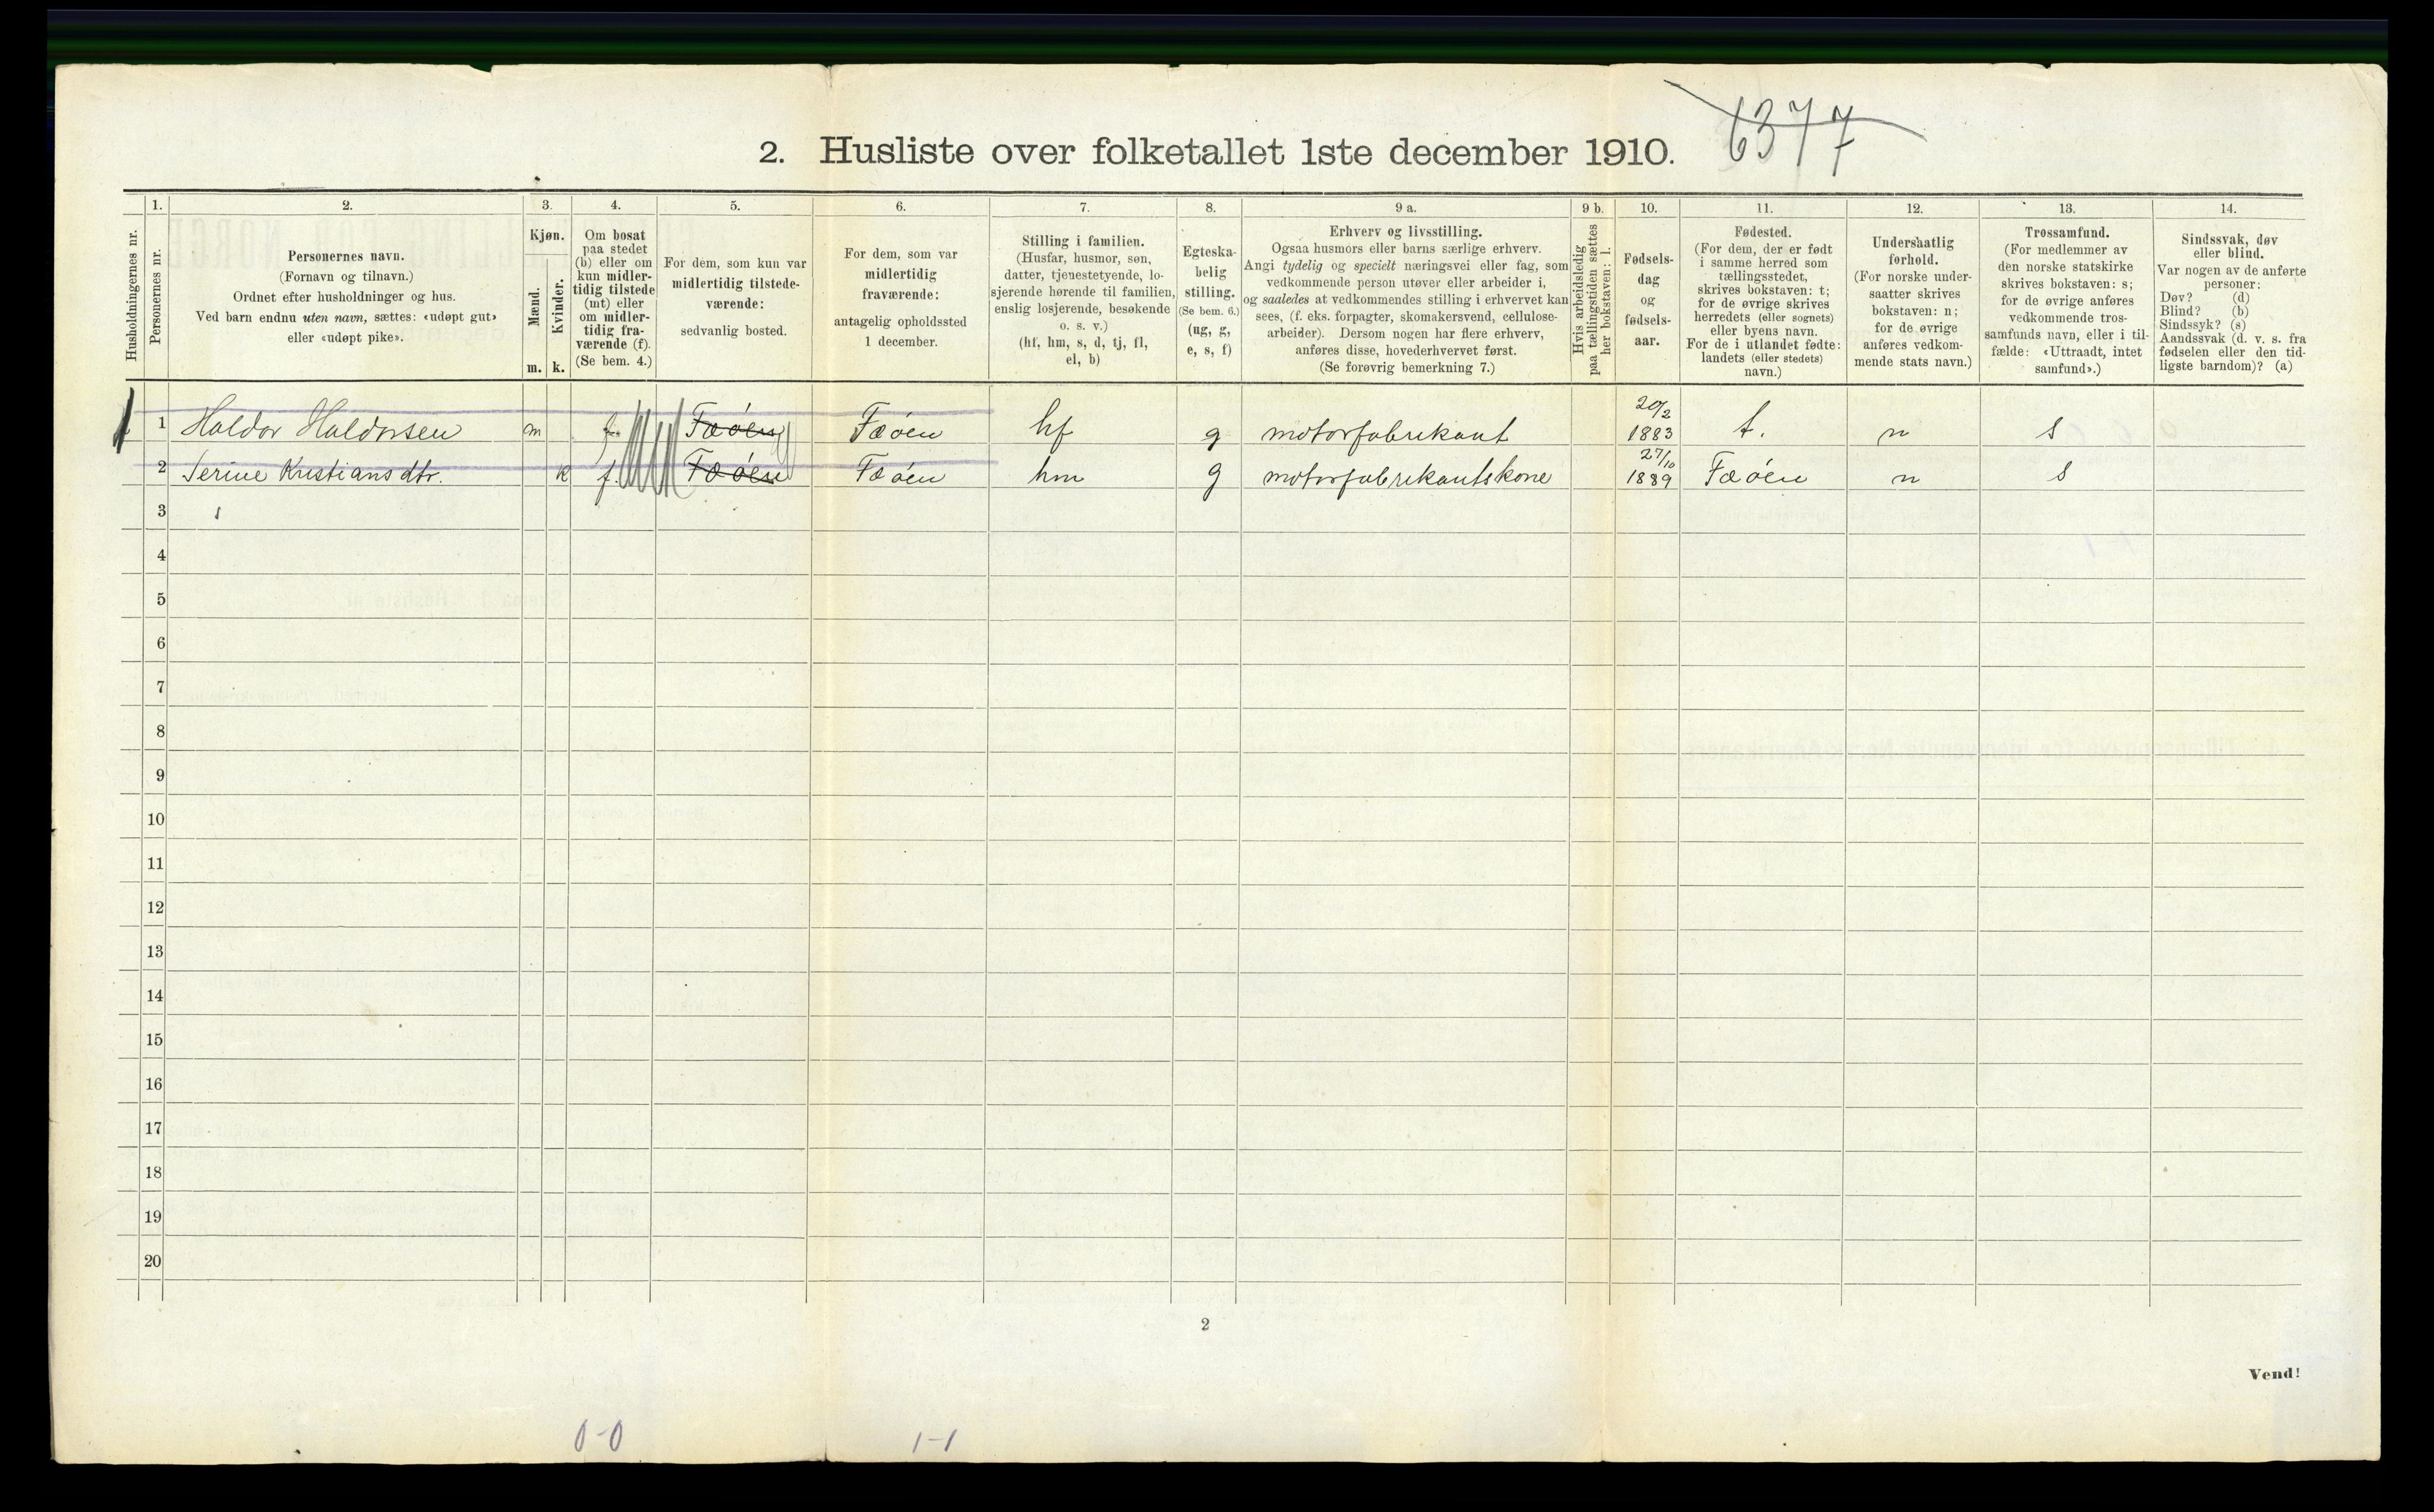 6377
2. Husliste over folketallet 1ste december 1910.
Husholdningernes nr.
1.
Personernes nr.
2.
Personernes navn.
(Fornavn og tilnavn.)
Ordnet efter husholdninger og hus.
Ved barn endnu uten navn, sættes: «udøpt gut»
eller «udøpt pike».
3.
Kjøn.
Mænd.
m.
Kvinder.
k.
4.
Om bosat
paa stedet
(b) eller om
kun midler-
tidig tilstede
(mt) eller
om midler-
tidig fra-
værende (f).
(Se bem. 4.)
5.
For dem, som kun var
midlertidig tilstede-
værende:
sedvanlig bosted.
6.
For dem, som var
midlertidig
fraværende:
antagelig opholdssted
1 december.
7.
Stilling i familien.
(Husfar, husmor, søn,
datter, tjenestetyende, lo-
sjerende hørende til familien,
enslig losjerende, besøkende
o. s. v.)
(hf, hm, s, d, tj, fl,
el, b)
8.
Egteska-
belig
stilling.
(Se bem. 6.)
(ug, g,
e, s, f)
9 a.
Erhverv og livsstilling.
Ogsaa husmors eller barns særlige erhverv.
Angi tydelig og specielt næringsvei eller fag, som
vedkommende person utøver eller arbeider i,
og saaledes at vedkommendes stilling i erhvervet kan
sees, (f. eks. forpagter, skomakersvend, cellulose-
arbeider). Dersom nogen har flere erhverv,
anføres disse, hovederhvervet først.
(Se forøvrig bemerkning 7.)
9 b.
Hvis arbeidsledig
paa tællingstiden sættes
her bokstaven: l.
10.
Fødsels-
dag
og
fødsels-
aar.
11.
Fødested.
(For dem, der er født
i samme herred som
tællingsstedet,
skrives bokstaven: t;
for de øvrige skrives
herredets (eller sognets)
eller byens navn.
For de i utlandet fødte:
landets (eller stedets)
navn.)
12.
Undersaatlig
forhold.
(For norske under-
saatter skrives
bokstaven: n;
for de øvrige
anføres vedkom-
mende stats navn.)
13.
Trossamfund.
(For medlemmer av
den norske statskirke
skrives bokstaven: s;
for de øvrige anføres
vedkommende tros-
samfunds navn, eller i til-
fælde: «Uttraadt, intet
samfund».)
14.
Sindssvak, døv
eller blind.
Var nogen av de anførte
personer:
Døv? (d)
Blind? (b)
Sindssyk? (s)
Aandssvak (d. v. s. fra
fødselen eller den tid-
ligste barndom)? (a)
1 Haldor Haldorsen m f. Fæøen Fæøen hf g motorfabrikant 20/2 1883 t. n s
2 Serine Kristiansdtr. k f. Fæøen Fæøen hm g motorfabrikantskone 27/10 1889 Fæøen n s
3
4
5
6
7
8
9
10
11
12
13
14
15
16
17
18
19
20
2
Vend!
0-0 1-1